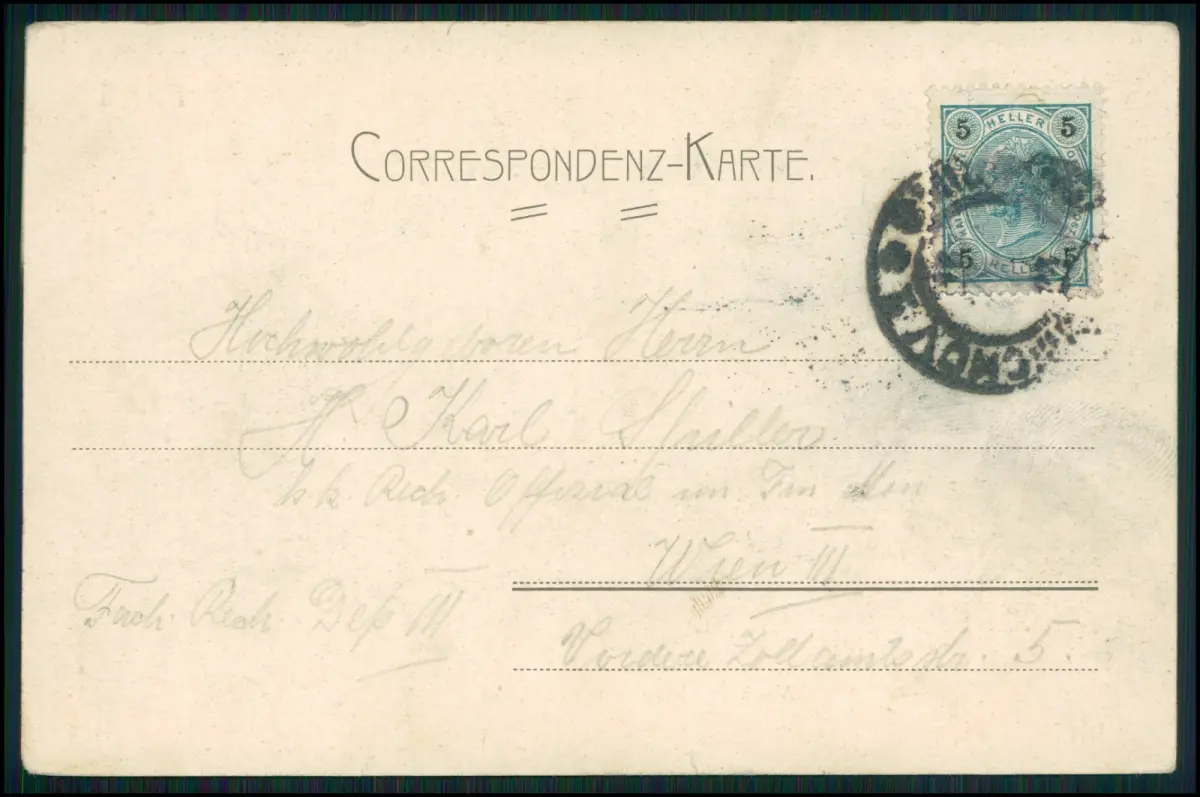 CORRESPONDENZ-KARTE.
5 HELLER 5
5 HELLER 5
Hochwohlgeboren Herrn
H. Karl
k k Rech. Offizial im Fin Min
Wien III
Fach. Rech. Dep III
Vordere Zollamtsstr. 5.